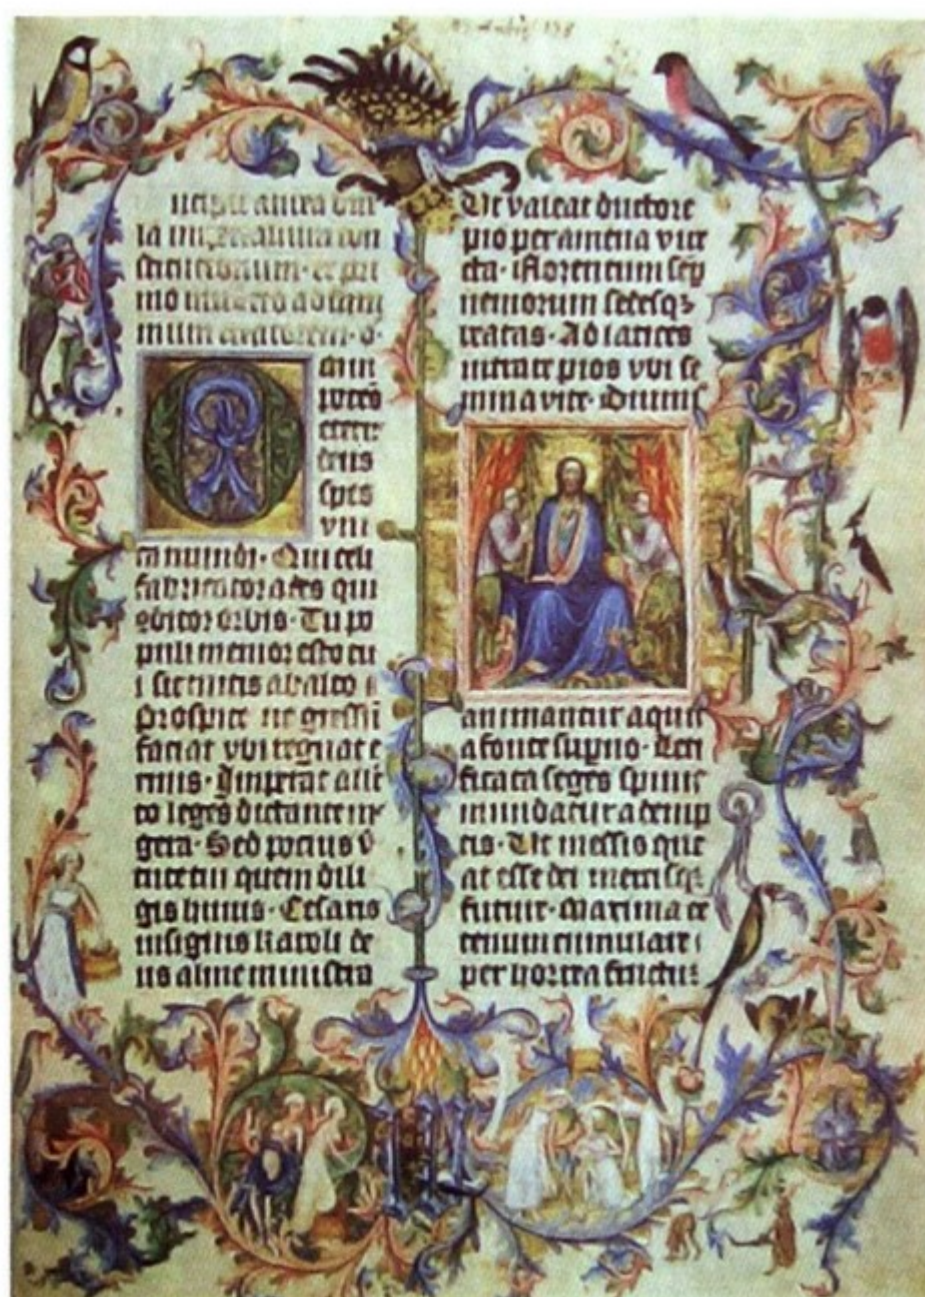 ncipit aurea bul
la imperialium con
stitucionum · et pri
mo
mum creatorem · o
poteñ
eterne
deus
spes
vni
ca mundi · Qui celi
fabricator ades qui
9ditor orbis · Tu po
puli memor esto tu
i sic mitis ab alto
Prospice ne gressū
faciat vbi regnat e
rinis · Imperat alle
cto leges dictante me
gera · Sed pocius v
tute tui quem dili
gis huius · Cesaris
insignis karoli de
us alme ministra
Ut valeat ductore
pio per amena vire
cta · Florentum sep
nemorum sedesqȝ
beatas · Ad latices
intrare pios vbi se
mina vite · Diuinis
animantur aquis
a fonte supno · Leti
ficata seges spinis
mundatur ademp
tis · Ut messis que
at esse dei mercisqȝ
future · Maxima ce
tenum cumulare
per horrea fructus